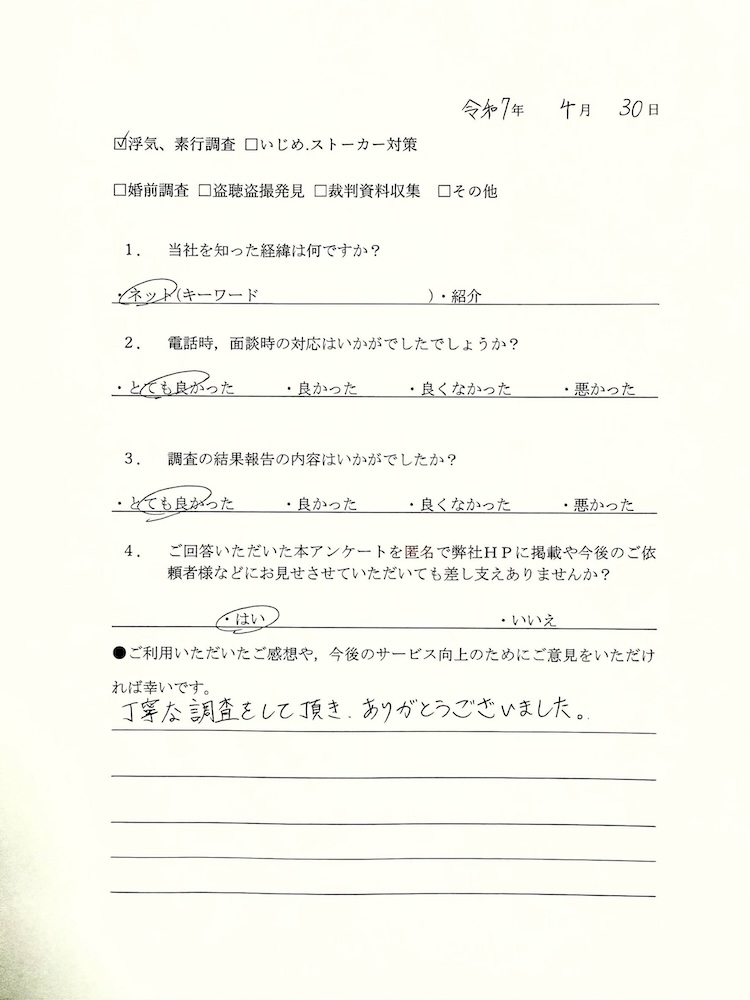 令和7年 4月 30日
☑浮気、素行調査 □いじめ.ストーカー対策
□婚前調査 □盗聴盗撮発見 □裁判資料収集 □その他
1． 当社を知った経緯は何ですか？
・ネット(キーワード )・紹介
2． 電話時，面談時の対応はいかがでしたでしょうか？
・とても良かった ・良かった ・良くなかった ・悪かった
3． 調査の結果報告の内容はいかがでしたか？
・とても良かった ・良かった ・良くなかった ・悪かった
4． ご回答いただいた本アンケートを匿名で弊社ＨＰに掲載や今後のご依
頼者様などにお見せさせていただいても差し支えありませんか？
・はい ・いいえ
●ご利用いただいたご感想や，今後のサービス向上のためにご意見をいただけ
れば幸いです。
丁寧な調査をして頂き、ありがとうございました。